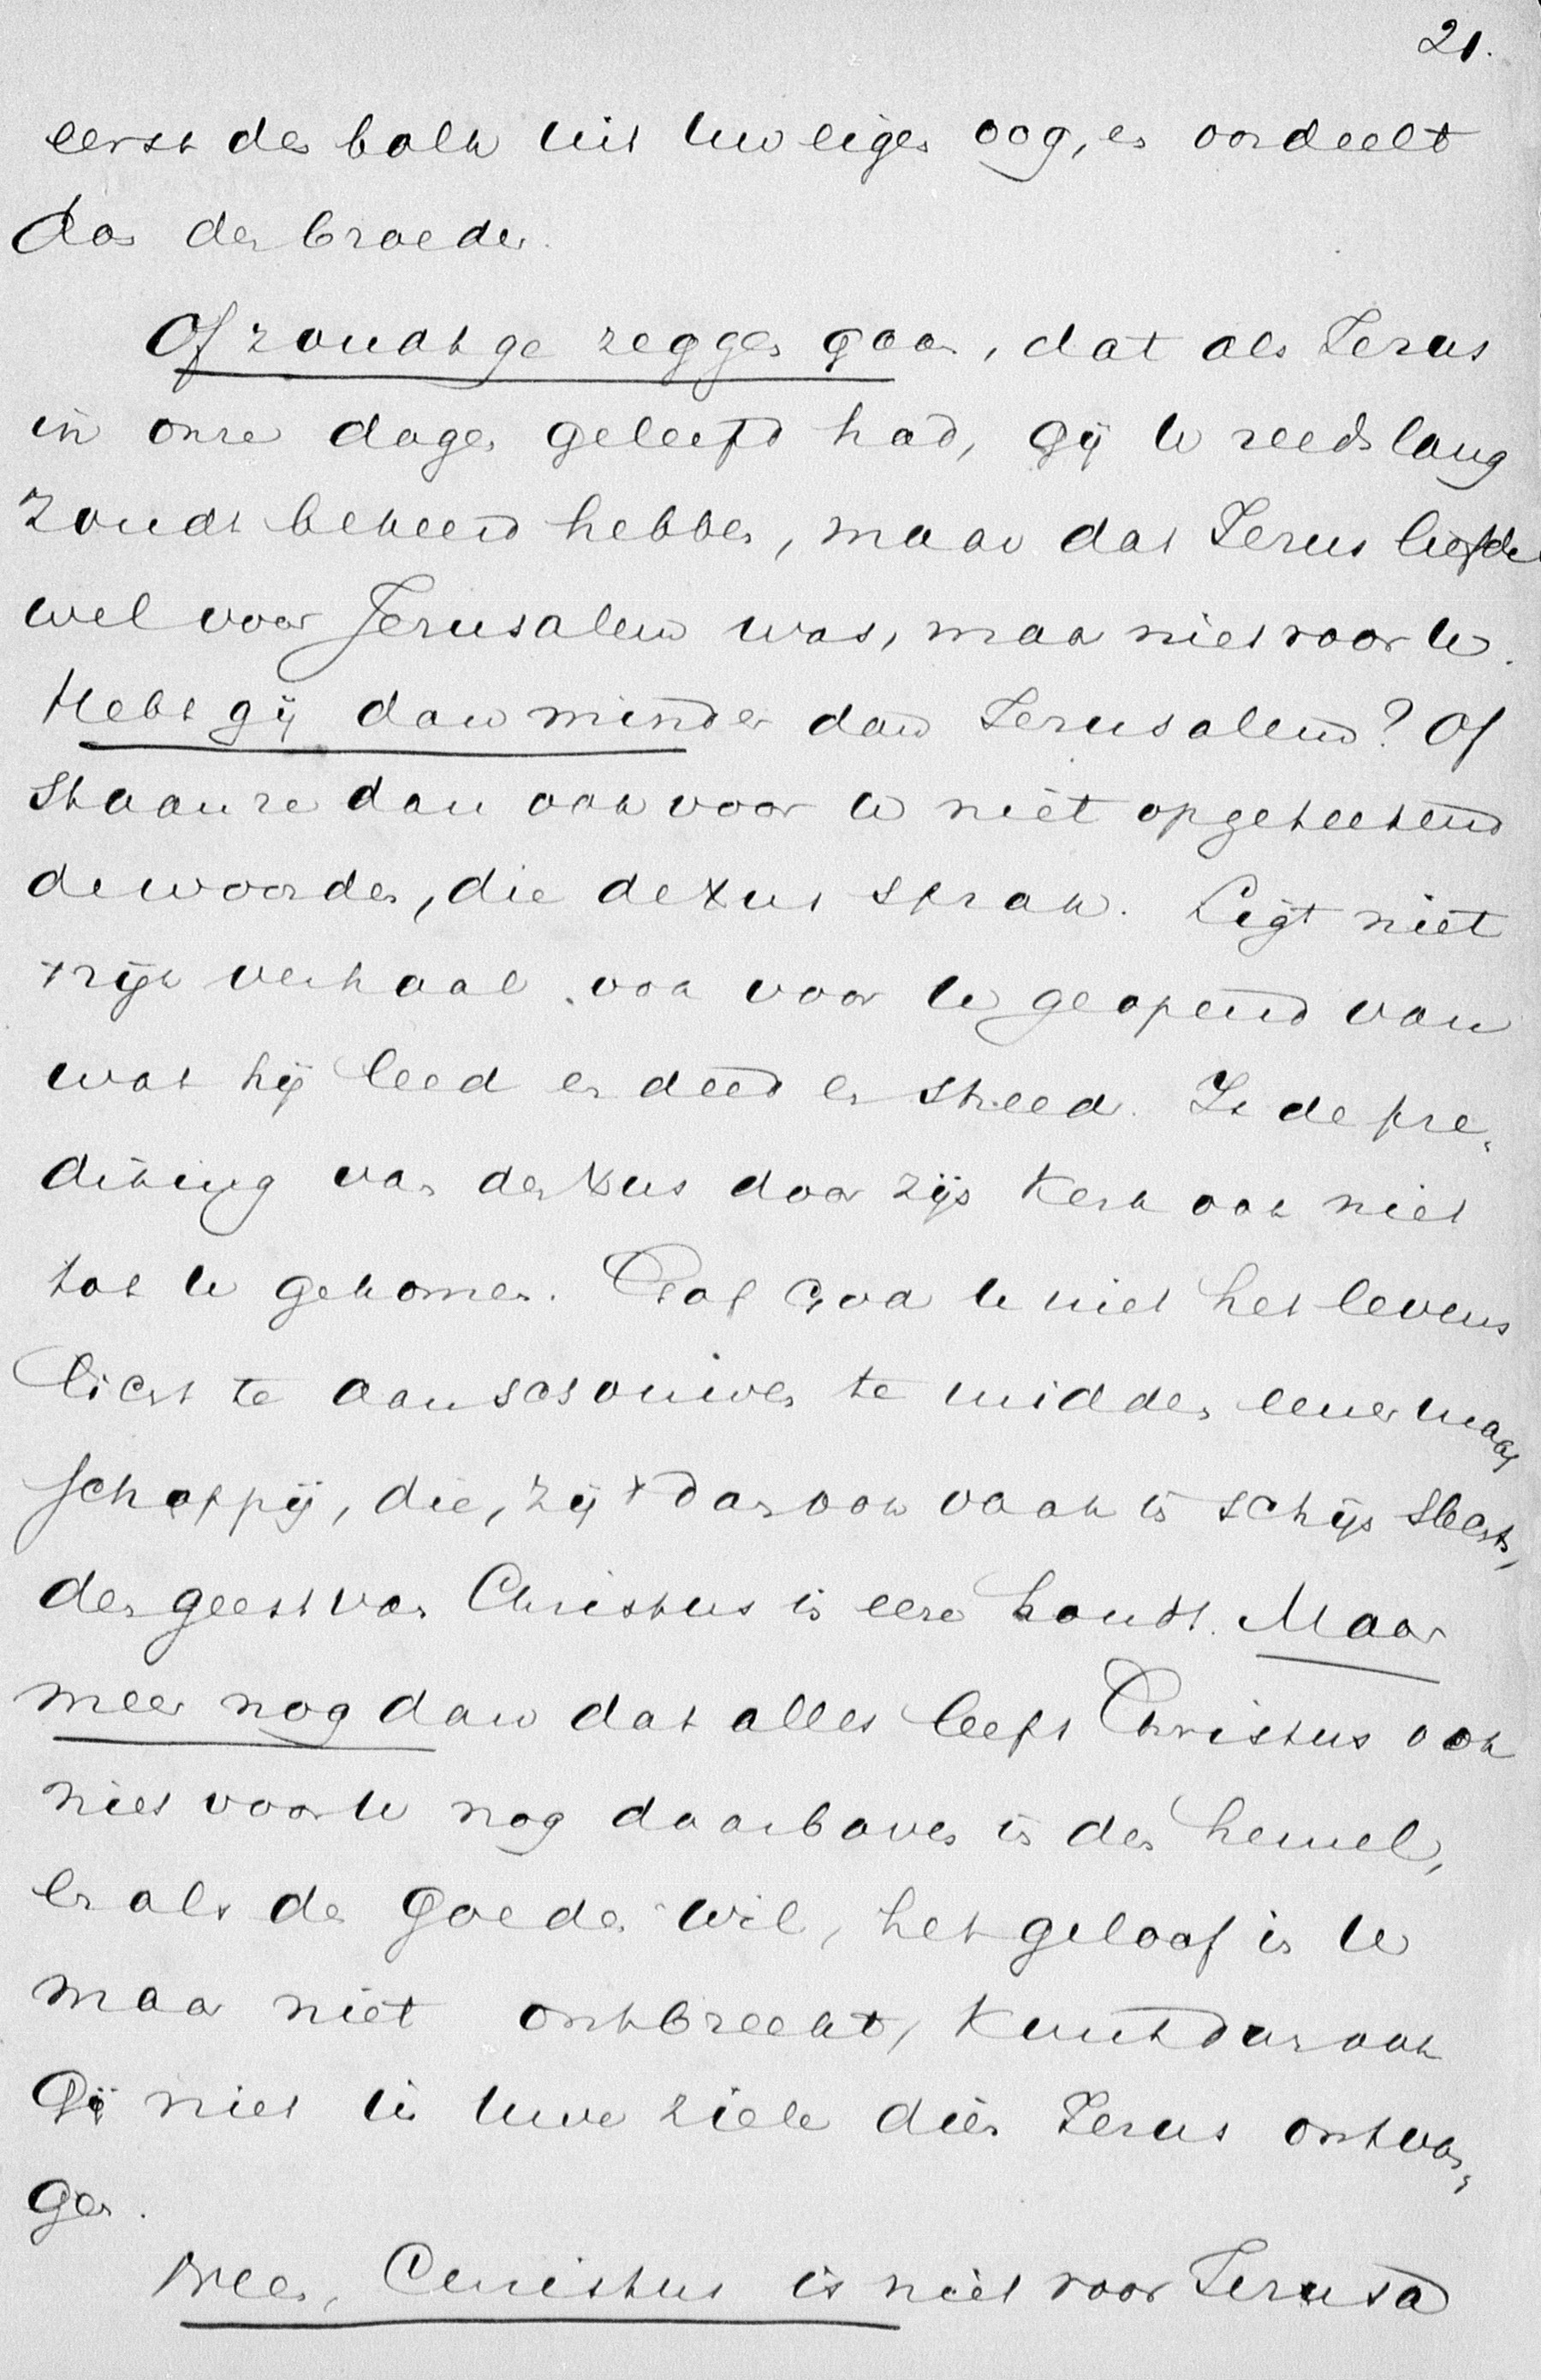 21.
eerst den balk uit uw eigen oog, en oordeelt
dan den broeder.
Of zoudt ge zeggen gaan, dat als Jezus
in onze dagen geleefd had, gij U reeds lang
zoudt bekeerd hebben, maar dat Jezus liefde
wel voor Jerusalem was, maar niet voor U.
Hebt gij dan minder dan Jerusalem? Of
staan ze dan ook voor U niet opgeteekend
de woorden, die de Xus sprak. Ligt niet
zijn verhaal ook voor U geopend van
wat hij leed en deed en streed. Is de pre„
diking van den Xus door zijn Kerk ook niet
tot U gekomen. Gaf God U niet het levens
licht te aanschouwen te midden eener maat
schappij, die, zij 't dan ook vaak in schijn slechts,
den geest van Christus in eere houdt. Maar
meer nog dan dat alles leeft Christus ook
niet voor U nog daarboven in den hemel,
en als de goede wil, het geloof in U
maar niet ontbreekt, kunt dan ook
Gij niet in uwe ziele dien Jezus ontvan„
gen.
Neen, Christus is niet voor Jerusa